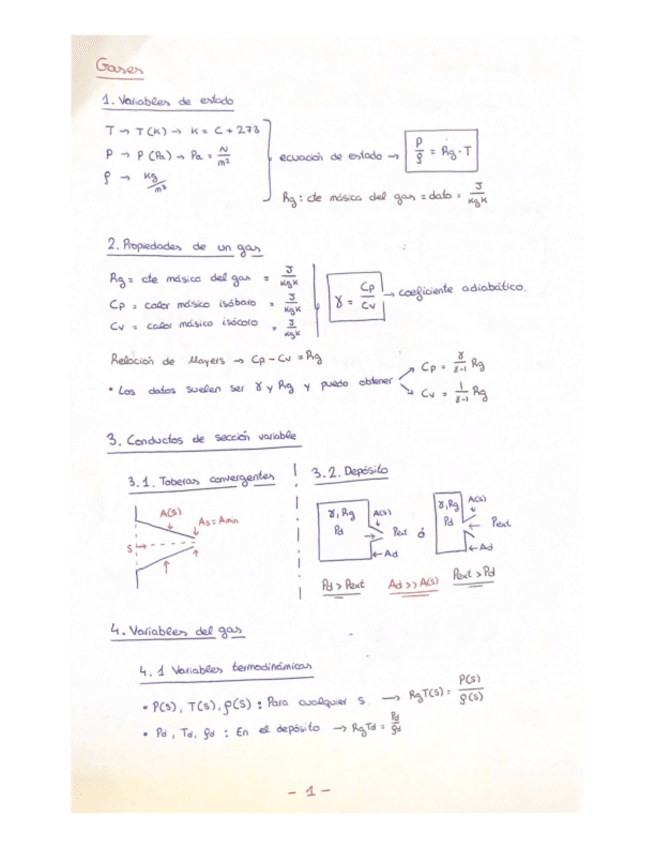 Gases
1. Variables de estado
T → T(K) → K = C + 273
P → P (Pa) → Pa = N/m²
ρ → Kg/m³
ecuación de estado → P/ρ = Rg · T
Rg : cte másica del gas = dato = J/KgK
2. Propiedades de un gas
Rg = cte másica del gas = J/KgK
Cp = calor másico isóbaro = J/KgK
Cv = calor másico isócoro = J/KgK
γ = Cp/Cv → coeficiente adiabático.
Relación de Mayers → Cp - Cv = Rg
• Los datos suelen ser γ y Rg y puedo obtener
Cp = γ/γ-1 Rg
Cv = 1/γ-1 Rg
3. Conductos de sección variable
3.1. Toberas convergentes
A(s)
As = Amin
S →
3.2. Depósito
γ, Rg
Pd
A(s)
Pext
Ad
ó
γ, Rg
Pd
A(s)
Pext
Ad
Pd > Pext
Ad >> A(s)
Pext > Pd
4. Variables del gas
4.1 Variables termodinámicas
• P(s), T(s), ρ(s) : Para cualquier s. → RgT(s) = P(s)/ρ(s)
• Pd, Td, ρd : En el depósito → RgTd = Pd/ρd
- 1 -